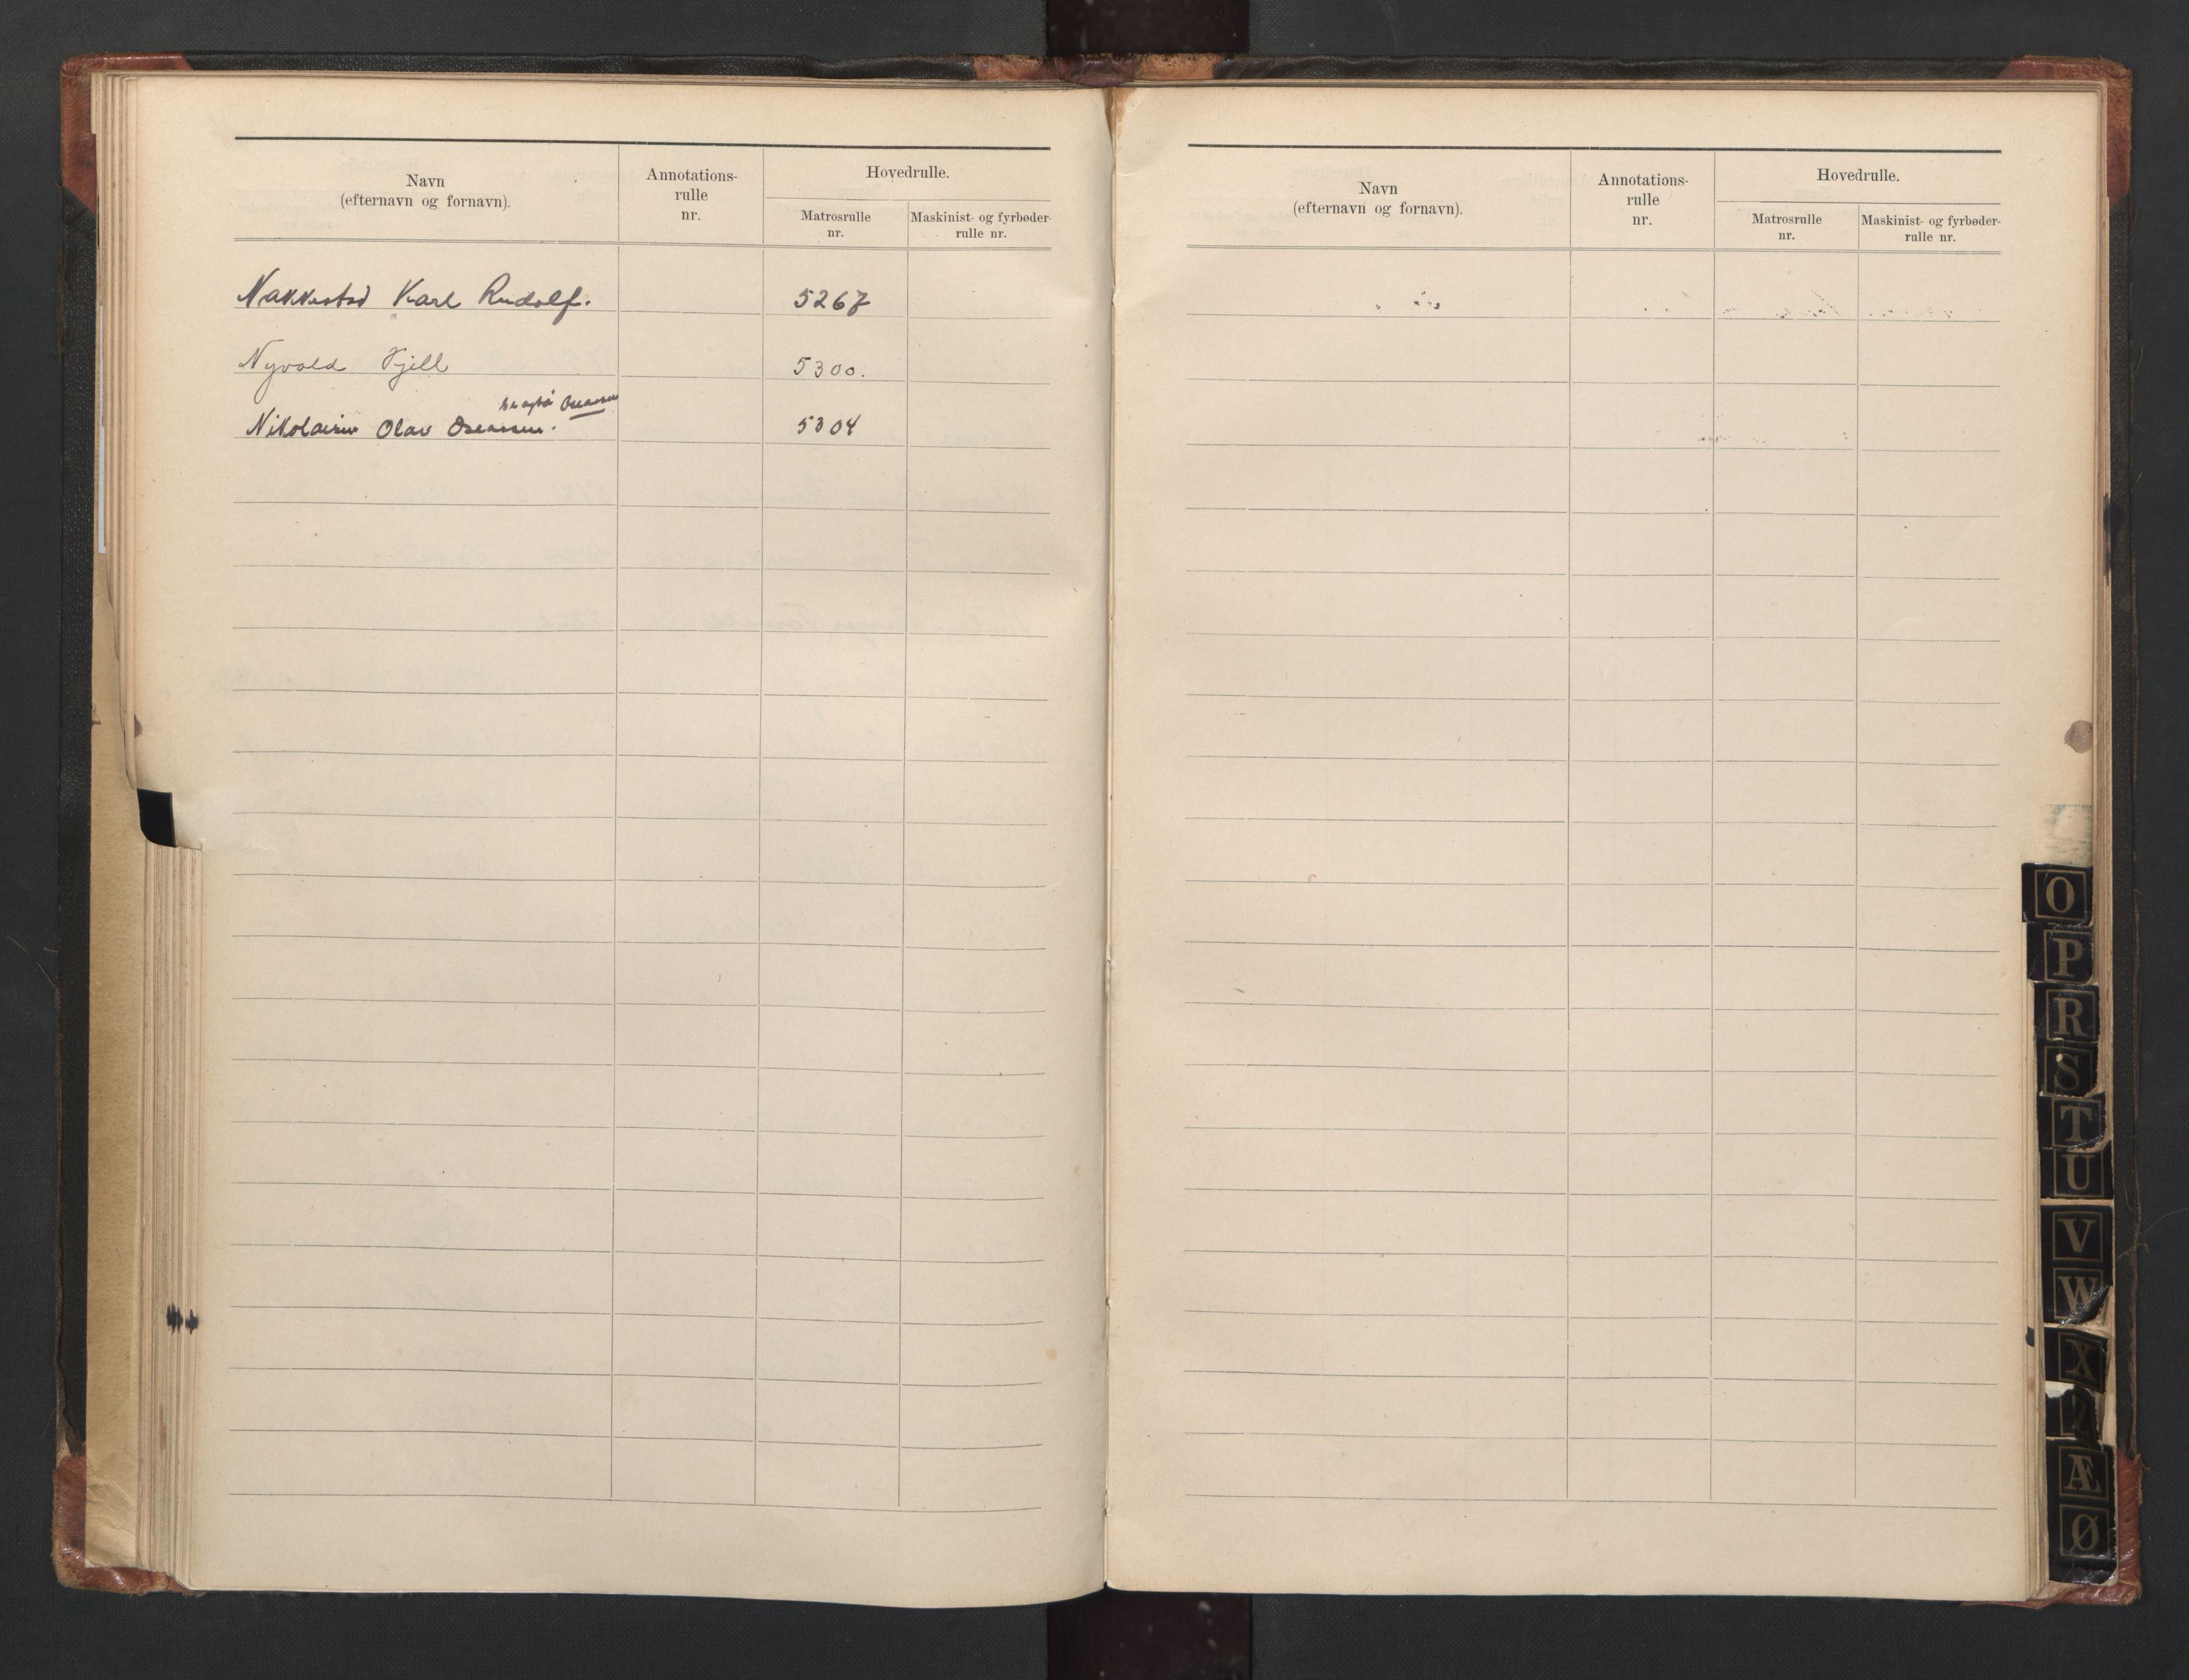 Navn
(efternavn og fornavn).
Annotations-
rulle
nr.
Hovedrulle.
Matrosrulle
nr.
Maskinist- og fyrbøder-
rulle nr.
Nakkestad Karl Rudolf. 5267
Nyvold Kjell 5300.
Oseassen
Nikolaisen Olav Oseassen. 5304
Navn
(efternavn og fornavn).
Annotations-
rulle
nr.
Hovedrulle.
Matrosrulle
nr.
Maskinist- og fyrbøder-
rulle nr.
O
P
R
S
T
U
V
W
X
Z
Æ
Ø